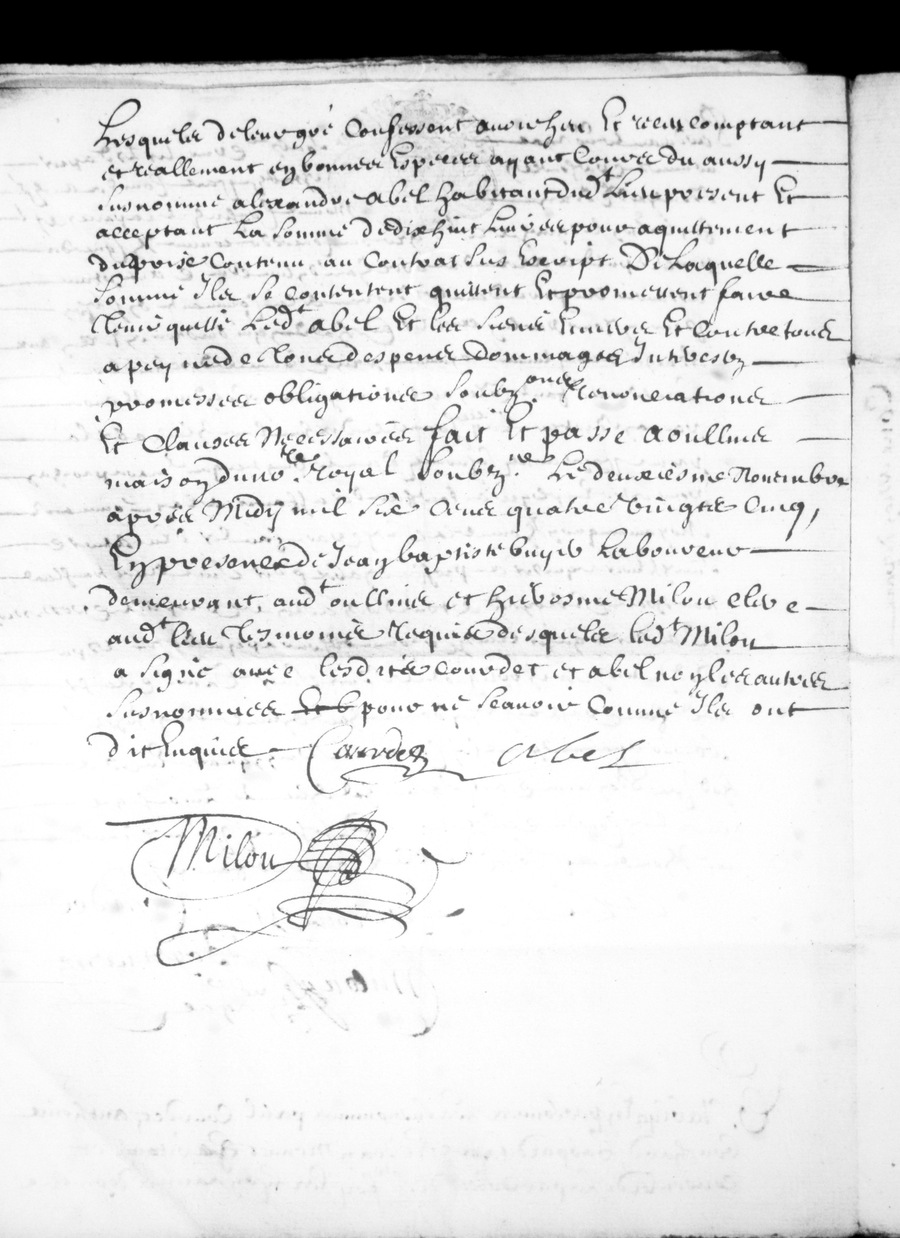 Lesquels de leur gré Confessent avoir heu Et receu Comptant
et reallement en bonnes Especes ayant Cours du aussy
susnommé alexandre abel habitant dud.t Lieu present Et
acceptant La somme de dix huit Livres pour aquittement
du prix Contenu au Contrat sus Escript De Laquelle
somme Ils se Contentent quittent Et promettent faire
tenir quitte Led.t abel Et les siens Envers Et Contre tous
a peyne de tous despens dommages Interests
promesses obligations soubz.ons Renonciations
Et Clauses Necessaires fait Et passé a oullins
maison du no.re Royal soubz.né Le deuxiesme Novembre
apres Midy mil six Cens quatre vingts Cinq,
En presence de Jean baptiste buyer Laboureur
demeurant aud.t oullins et hierosme Milou clerc
aud.t lieu tesmoins Requis desquels led.t Milou
a signé avec lesdits Courdet et abel non les autres
susnommés pour ne scavoir Comme Ils ont
dit Enquis Courdet abel
Milou